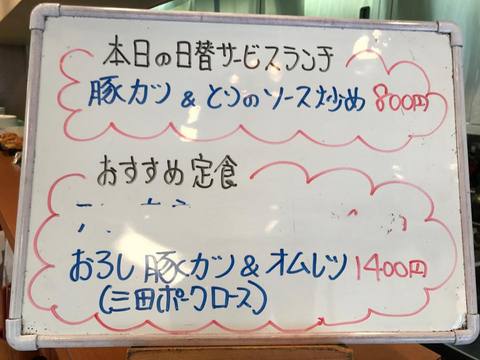 本日の日替サービスランチ
豚カツ & とりのソース炒め 800円
おすすめ定食
おろし豚カツ & オムレツ 1400円
(三田ポークロース)